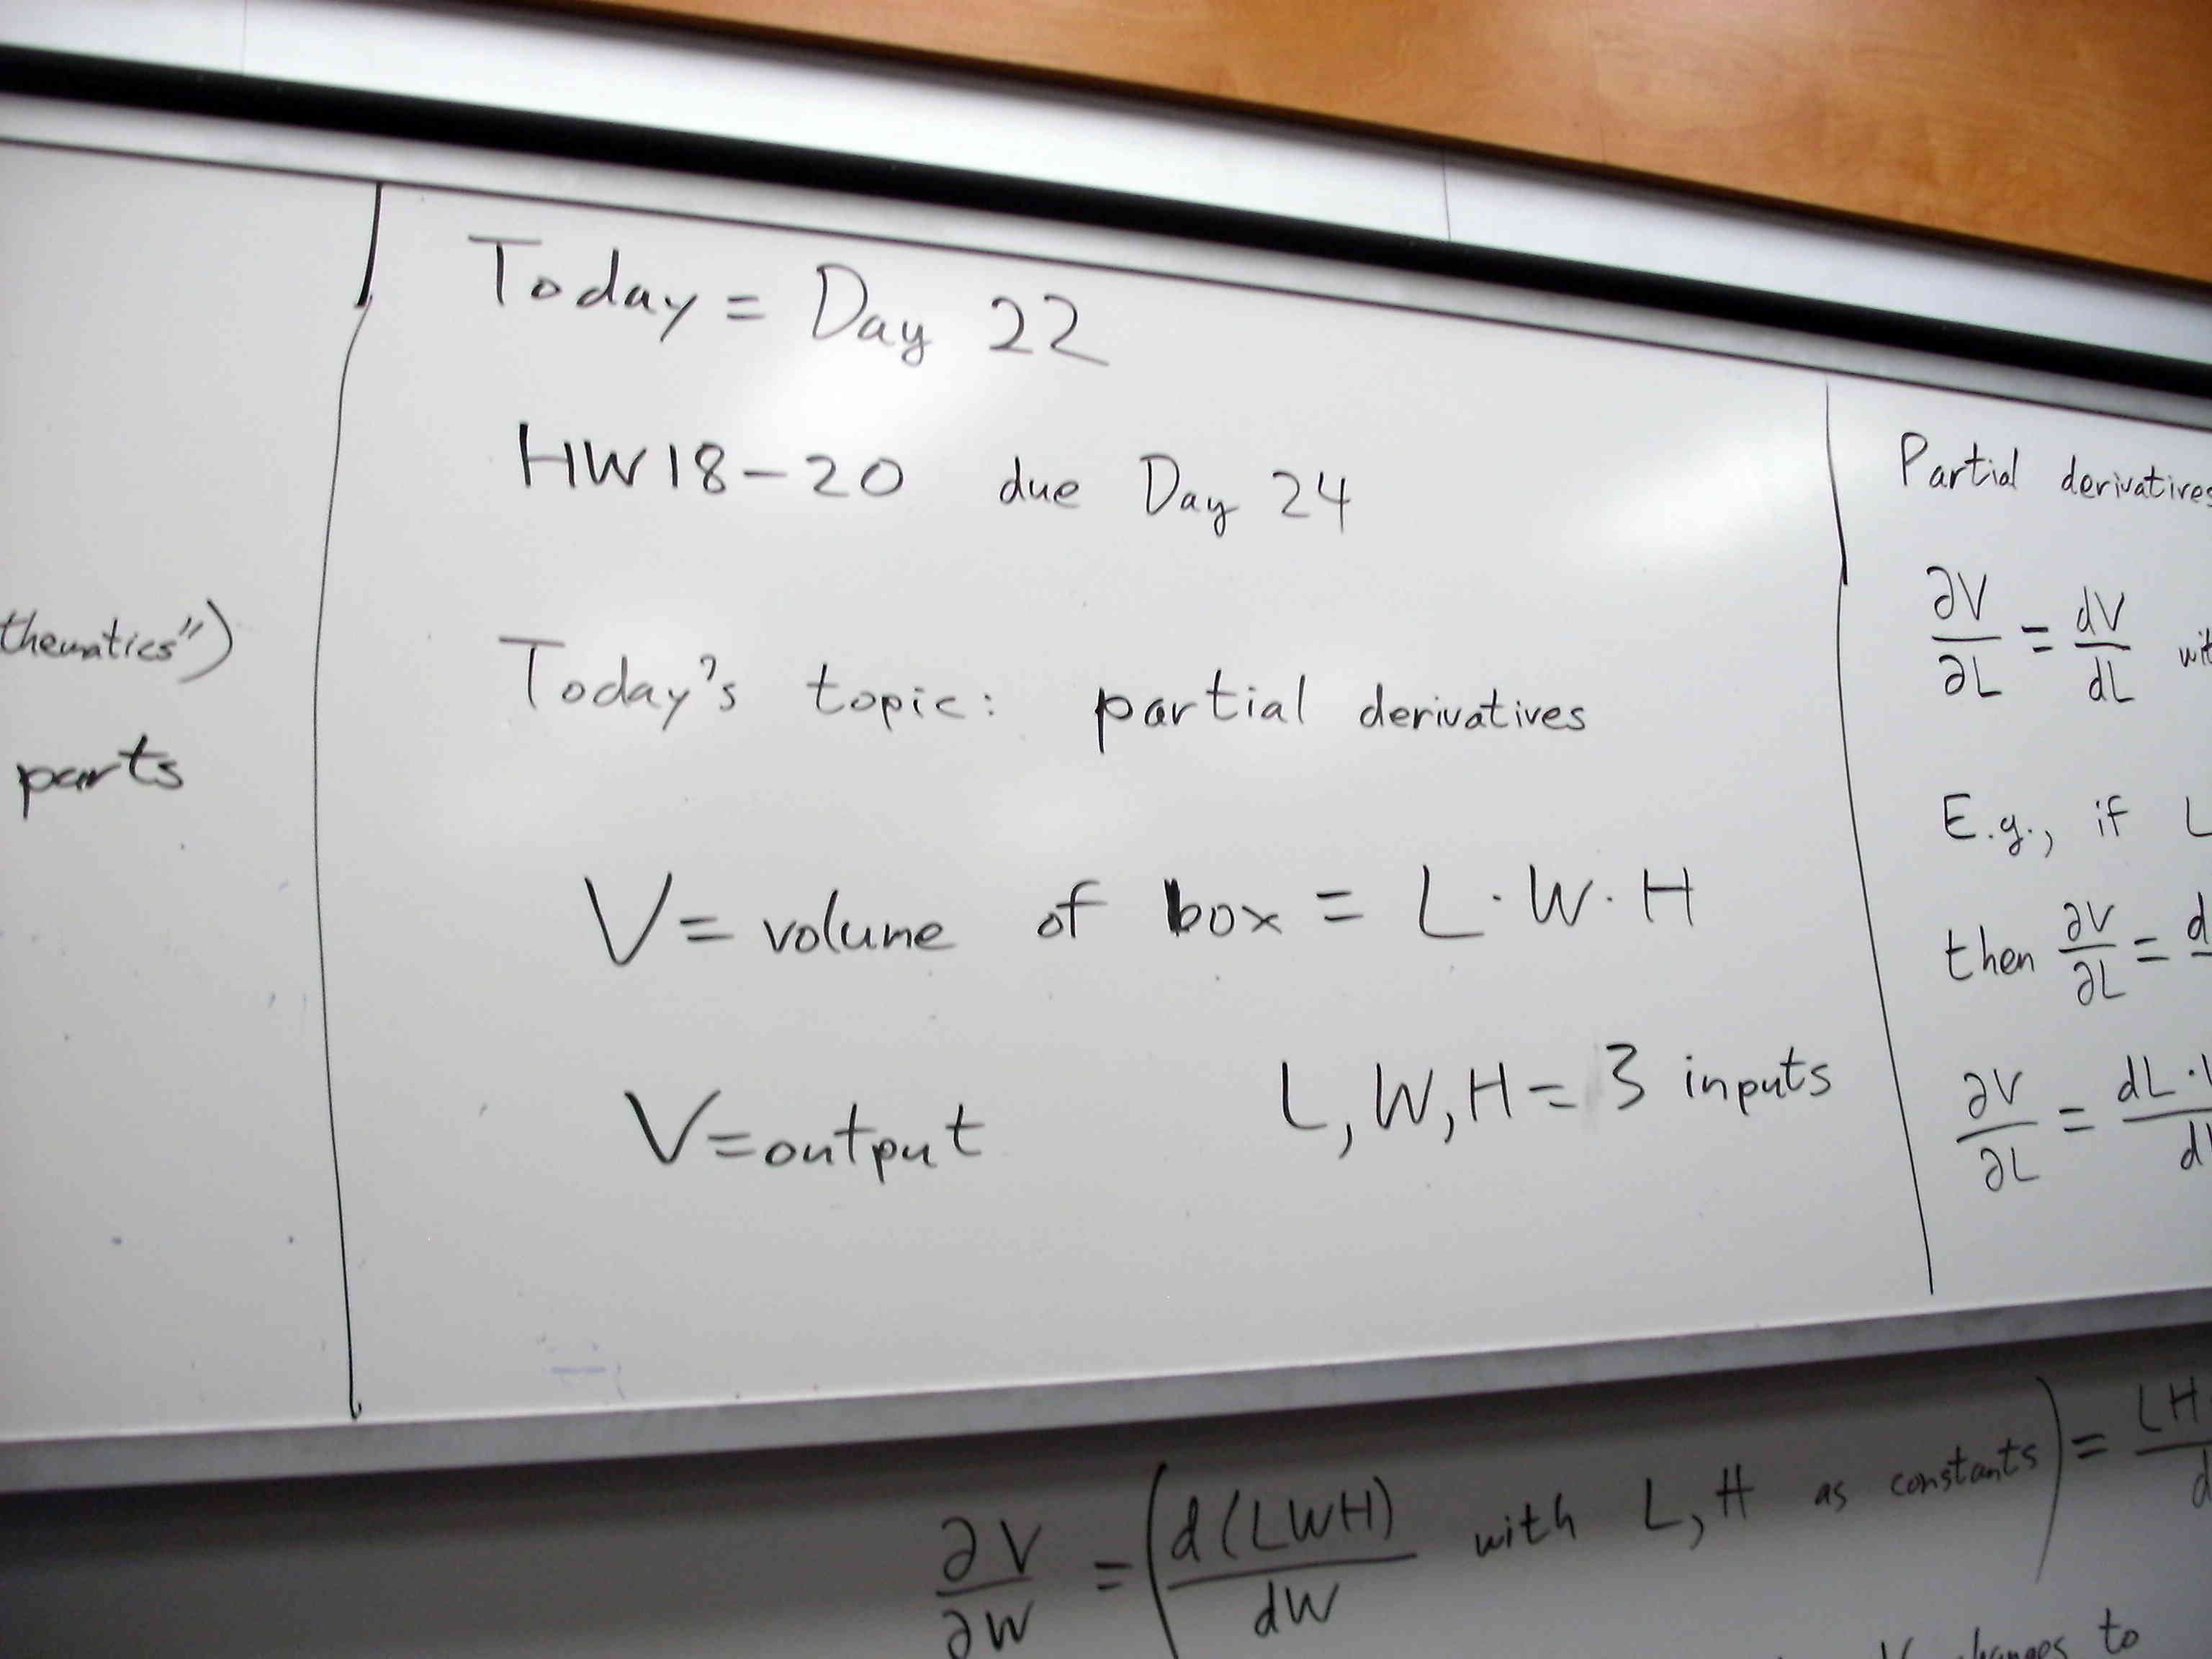 thematics")
parts
Today = Day 22
HW18-20 due Day 24
Today's topic: partial derivatives
V = volume of box = L · W · H
V = output L, W, H = 3 inputs
Partial derivatives
∂V/∂L = dV/dL
E.g., if L
then ∂V/∂L = d
∂V/∂L = dL ·
∂V/∂W = (d(LWH)/dW with L, H as constants) = LH/d
changes to